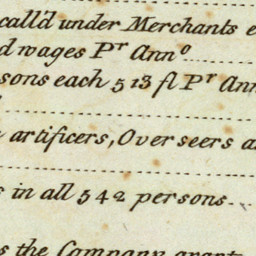 call'd under Merchants
d wages Pr Anno
sons each 513 fl Pr Ann
artificers, Overseers a
s in all 542 persons
s the Company grant